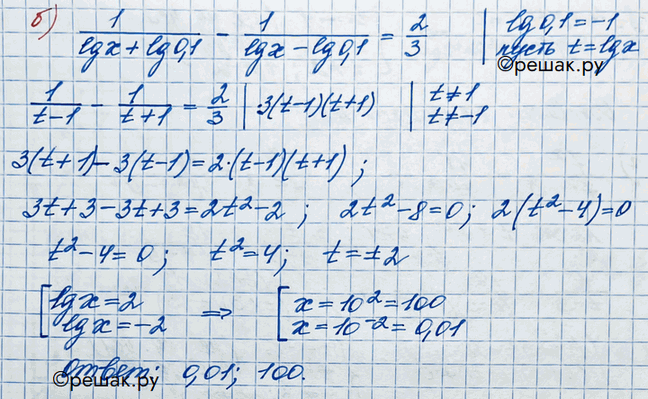 б) 1/(lgx + lg0,1) - 1/(lgx - lg0,1) = 2/3 | lg0,1 = -1
пусть t = lgx
©решак.ру
1/(t-1) - 1/(t+1) = 2/3 | ·3(t-1)(t+1) | t≠1
t≠-1
3(t+1) - 3(t-1) = 2·(t-1)(t+1) ;
3t + 3 - 3t + 3 = 2t² - 2 ; 2t² - 8 = 0; 2(t² - 4) = 0
t² - 4 = 0 ; t² = 4; t = ±2
[ lgx = 2 => [ x = 10² = 100
lgx = -2 x = 10⁻² = 0,01
Ответ: 0,01; 100.
©решак.ру